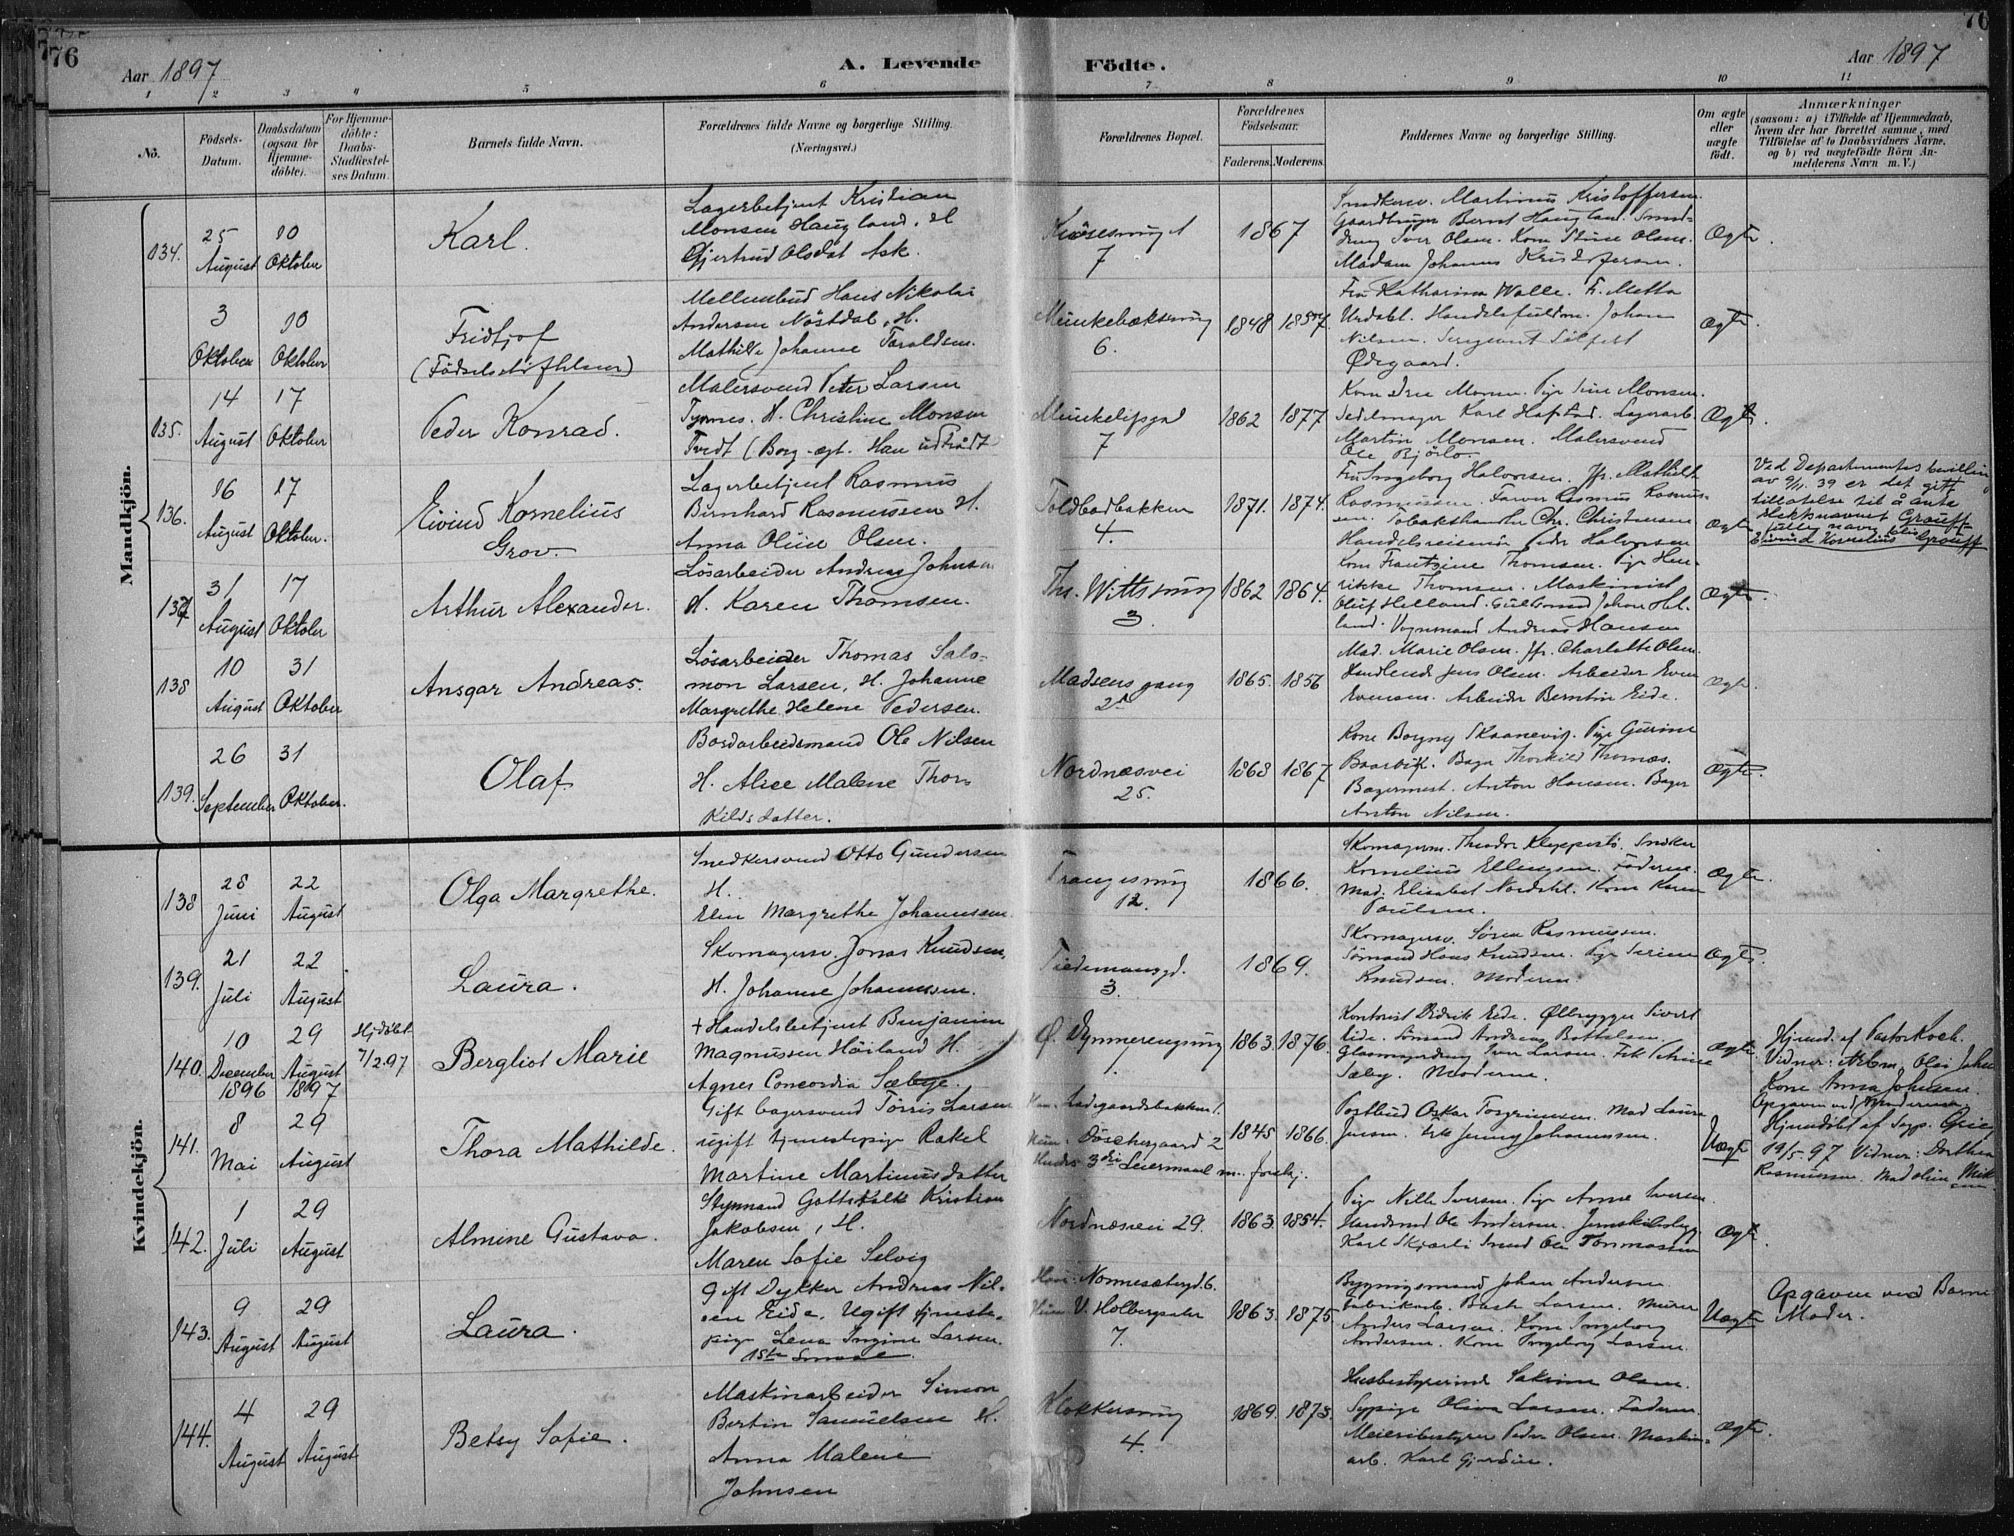 76
76
Aar 1897
A. Levende
Födte.
Aar 1897
1 2 3 4 5 6 7 8 9 10 11
No.
Födsels-
Datum.
Daabsdatum
(ogsaa for
Hjemme-
döbte).
For Hjemme-
döbte:
Daabs-
Stadfæstel-
ses Datum.
Barnets fulde Navn.
Forældrenes fulde Navne og borgerlige Stilling.
(Næringsvei.)
Forældrenes Bopæl.
Forældrenes
Födselsaar.
Faderens. Moderens.
Faddernes Navne og borgerlige Stilling.
Om ægte
eller
uægte
födt.
Anmærkninger
(saasom: a) i Tilfælde af Hjemmedaab,
hvem der har forrettet samme, med
Tilföielse af to Daabsvidners Navne,
og b) ved uægtefödte Börn An-
melderens Navn m. V.)
Mandkjön.
134.
25
August
10
Oktober
Karl.
Lagerbetjent Kristian
Monsen Haugland. H.
Gjertrud Olsdat Ask.
7
1867
Martinus Kristoffersen.
Bernt Haugland.
Iver Olsen. Kone Olsen.
Madam Johanna Kristofersen.
Ægte.
3
Oktober
10
Oktober
Fridtjof
Hans Nikolai
Andersen Nöstdal. H.
Mathilde Johanne Taraldsen.
Munkebæksmug
6.
1848 1857.
Fru Katharina Walle. F. Metta
Urdahl. Johan
Nilsen. Sergeant
Ödegaard.
Ægte
135.
14
August
17
Oktober
Peder Konrad.
Malersvend Peter Larsen
Tynnes. H. Christine Monsen
Tvedt (Borg. ægt. Han udtraadt
7
1862 1877
Kone Monsen. Pige Monsen.
Karl Hafstad. Lagerarb.
Martin Monsen. Malersvend
Ole Bjórlo.
Ægte.
136.
16
August
17
Oktober.
Eivind Kornelius
Grov.
Lagerbetjent Rasmus
Bernhard Rasmussen H.
Anna Oline Olsen.
Toldbodbakken
4.
1871. 1874.
Fru Ingeborg Halvorsen. Jfr. Mathilde
Rasmussen. Rasmus Rasmus-
sen. Tobakshandler Chr. Christensen
Handelsreisende Peder Halvorsen
Ægte
Ved Departementets bevilling
av 9/1. 39 er det gitt
tillatelse til å anta
slektsnavnet Grauff
fulle navn blir
Eivind Kornelius Grauff
137
31
August
17
Oktober
Arthur Alexander.
Lösarbeider Andreas Johnsen
H. Karen Thomsen.
Th. Wittsmug
3.
1862 1864.
Kone Frantzine Thomsen. Pige Hen-
rikke Thomsen. Maskinist
Oluf Helland. Guldsmed Johan Hel-
land. Vognmand Andreas Hansen
Ægte.
138
10
August
31
Oktober
Ansgar Andreas.
Lösarbeider Thomas Salo-
mon Larsen, H. Johanne
Margrethe Helene Pedersen.
Madsens gang
2A
1865. 1856
Mad. Marie Olsen. Jfr. Charlotte Olsen.
Jens Olsen. Arbeider Even
Evensen. Arbeider Berntin Eide.
Ægte.
139.
26
September
31
Oktober.
Olaf
Bordarbeidsmand Ole Nilsen
H. Alice Malene Thor-
kildsdatter.
Nordnæsvei
25.
1868 1867
Kone Borgny Skaanevig. Pige Gurine
Baarvik. Bager Thorkild Thomas.
Bagermest. Anton Hansen. Bager
Anton Nilsen.
Ægte.
Kvindekjön.
138
28
Juni
22
August
Olga Margrethe.
Snedkersvend Otto Gundersen
H.
Elen Margrethe Johannessen.
Trangesmug
12.
1866.
Skomagerm. Theodor Kleppestö. Snedker
Kornelius Ellingsen. Faderen.
Mad. Elisabet Nordahl. Kone Karen
Paulsen.
Ægte.
139.
21
Juli
22
August
Laura.
Skomagersv. Jonas Knudsen,
H. Johanne Johannessen.
Tiedemansgd.
3.
1869.
Skomagersv. Sören Rasmussen.
Sömand Hans Knudsen. Pige Serine
Knudsen. Moderen.
Ægte.
140.
10
December
1896
29
August
1897
Hjdöbt
7/2.97
Bergliot Marie
+ Handelsbetjent Benjamin
Magnussen Höiland H.
Agnes Concordia Sæbye.
Ö. Dynnerengsmug
1.
1863. 1876.
Kontorist Didrik Eide. Ølbrygger Sivert
Eide. Sömand Andreas Bottolsen.
Iver Larsen. Frk
Sæby. Moderen.
Ægte
Hjemd. af Pastor Koch.
Vidner: Arbm. Ole John
Kone Anna Johnsen.
141.
8
Mai
29
August
Thora Mathilde.
Gift bagersvend Törris Larsen
ugift tjenestepige Rakel
Martine Martinusdatter
Han. Ladegaardsbakken 1.
Hun. Döschergaard 2
Hendes 3die Leiermaal m. forskj.
1845 1866.
Postbud Oskar Torgrimsen. Mad Laura
Jensen. Frk Jenny Johannessen.
Uægte
Opgaven ved Moderen
Hjemdöbt af
19/5.97 Vidner: Dorthea
Rasmussen. Mad Oline Mik-
142.
1
Juli
29
August
Almine Gustava.
Styrmand Gottskalk Kristian
Jakobsen, H.
Maren Sofie Selvig
Nordnæsvei 29.
1863. 1854.
Pige Nille Iversen. Pige Anne Iversen
Ole Andersen.
Karl Ole Tommassen
Ægte.
143.
9
August
29
August
Laura.
Gift Dykker Andreas Nil-
sen Eide. Ugift tjeneste-
pige Lena Ingine Larsen.
1ste
Han. Nonnesætergd. 6.
Hun V. Holbergsalm
7.
1863. 1875.
Bygningsmand Johan Andersen
Fabrikarb. Larsen. Murer
Anders Larsen. Kone Ingeborg
Andersen. Kone Ingeborg Larsen.
Uægte
Opgaven ved Barnets
Moder.
144.
4
August
29
August
Betsy Sofie.
Maskinarbeider Simon
Bertin Samuelsen H.
Anna Malene
Johnsen
Klokkersmug
4.
1869. 1873.
Husbestyrerinde Olsen.
Sypige Oliva Larsen. Faderen.
Meieribestyrer Peder Olsen. Maskin-
arb. Karl
Ægte.